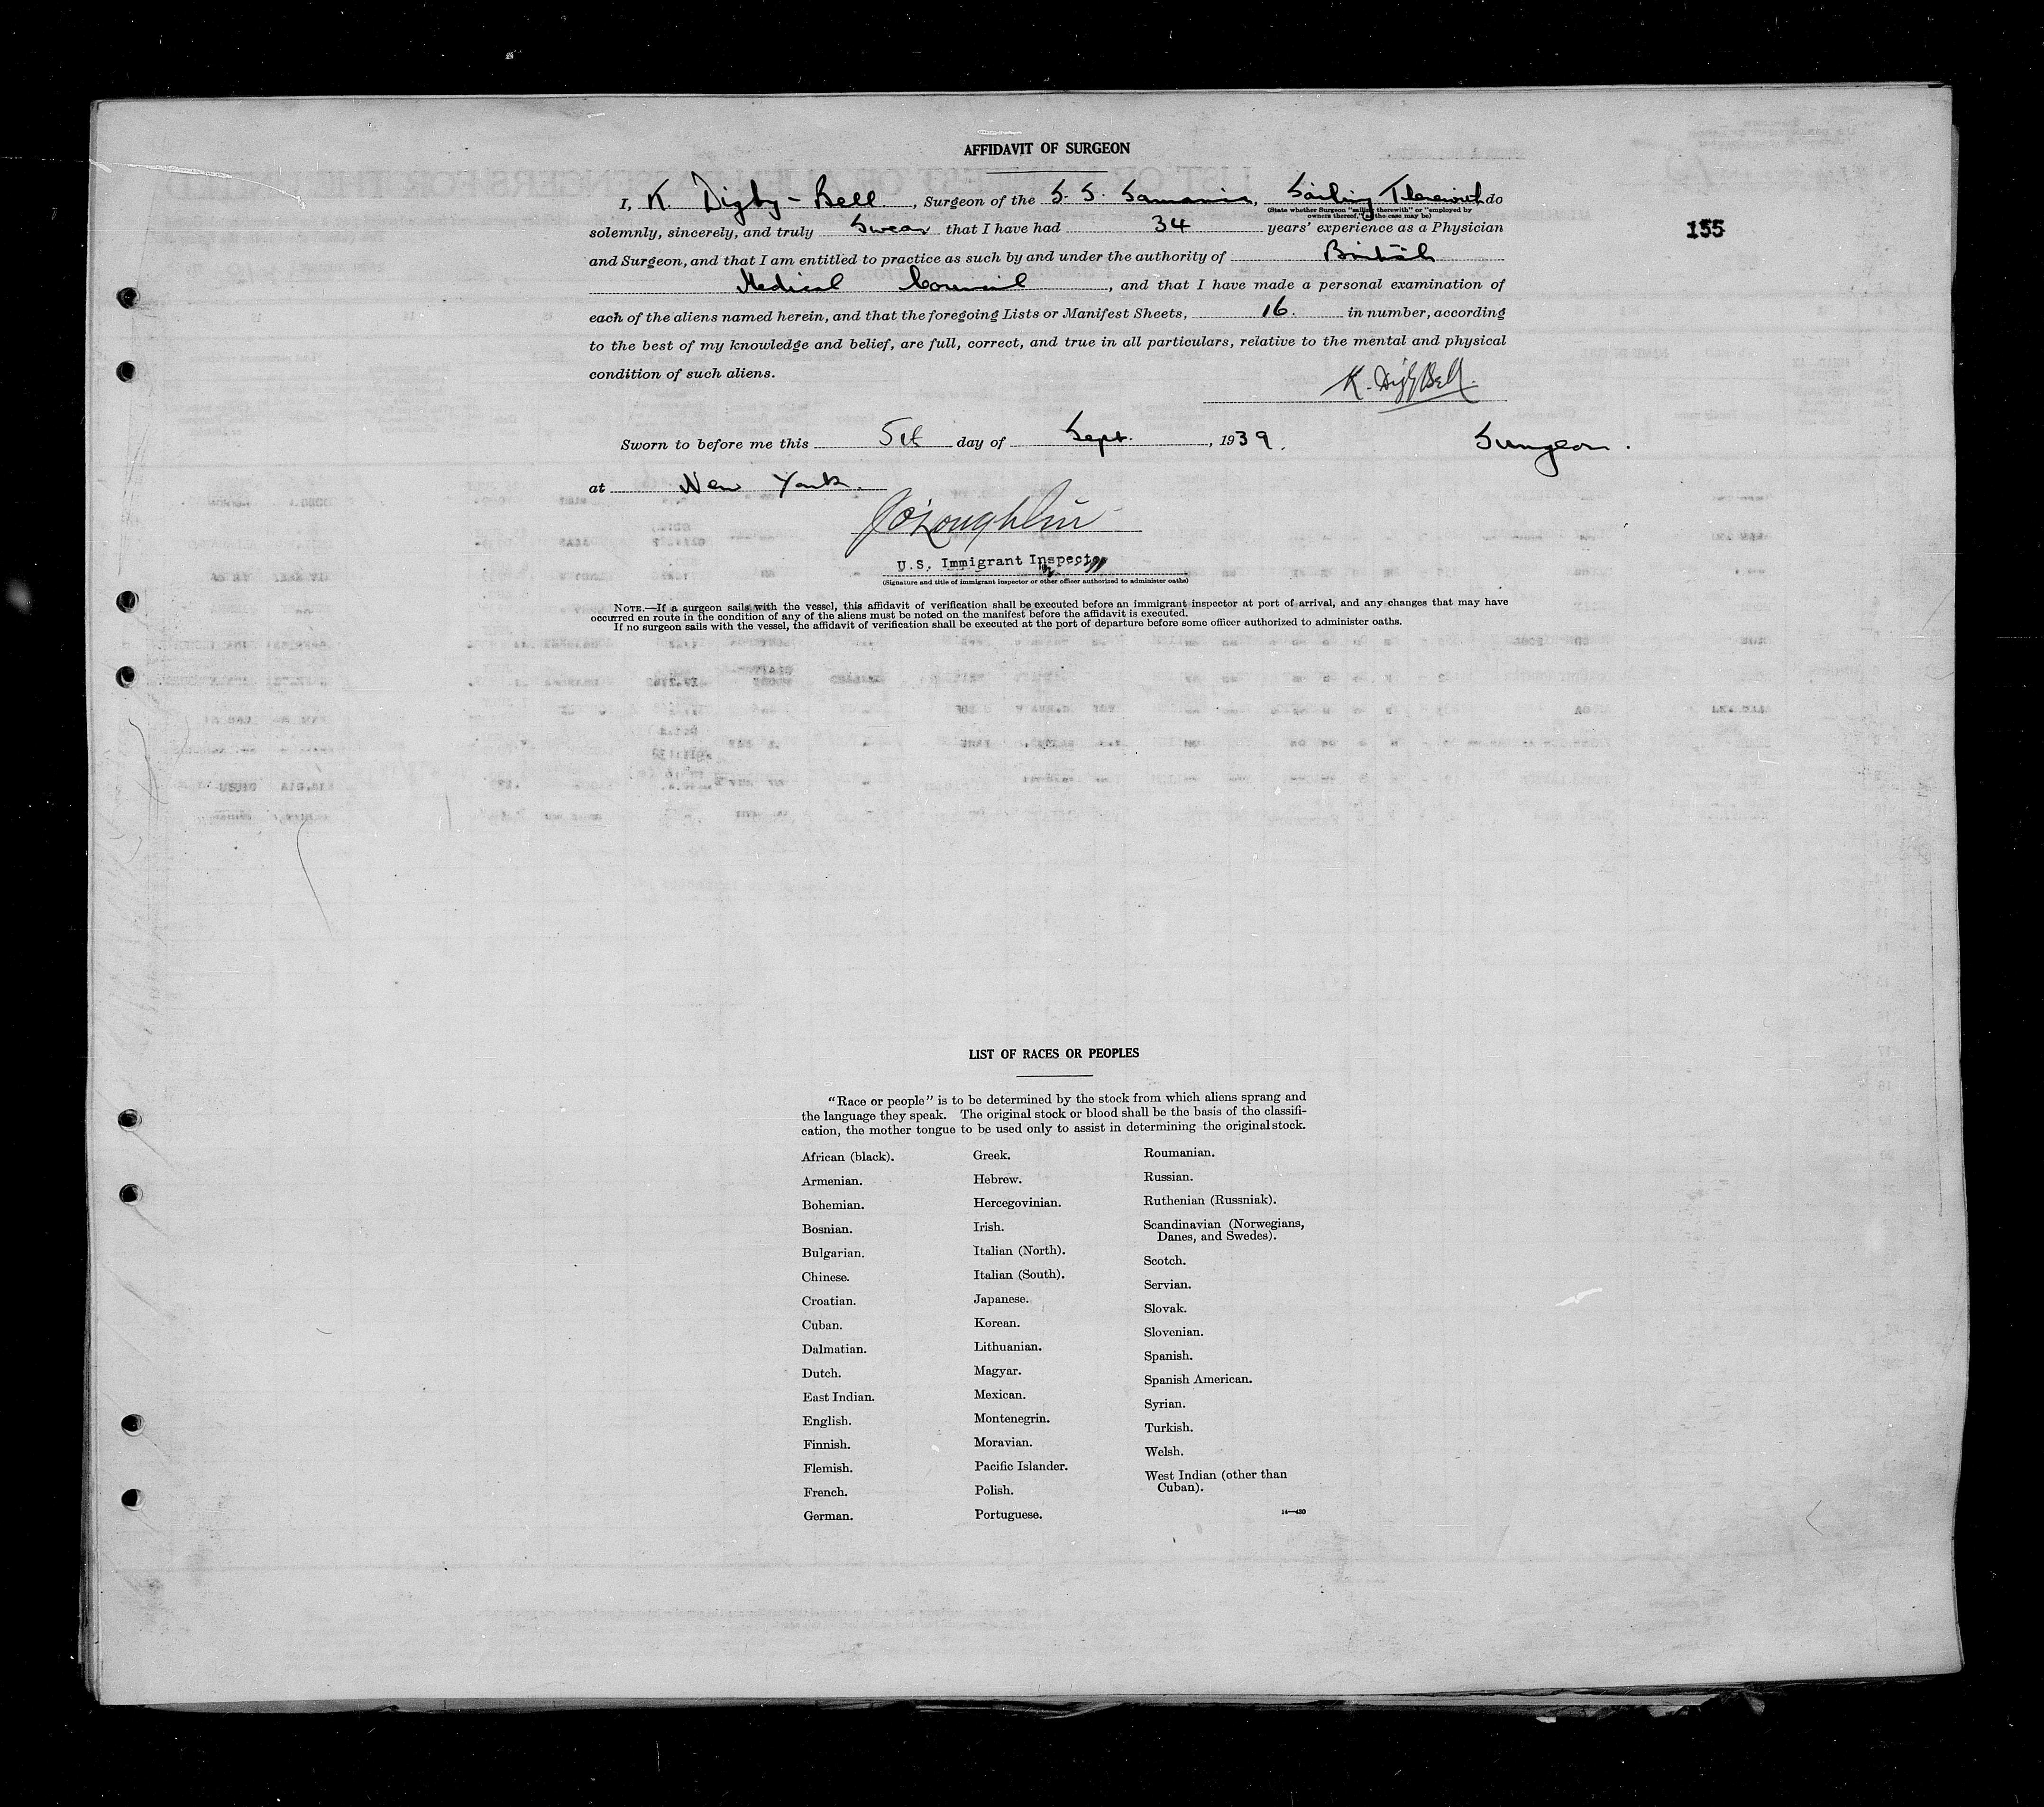 AFFIDAVIT OF SURGEON
I, K Digby-Bell, Surgeon of the S. S. Samaria, Sailing Therewith do
(State whether Surgeon "sailing therewith" or "employed by
owners thereof," as the case may be)
155
solemnly, sincerely, and truly Swear that I have had 34 years' experience as a Physician
and Surgeon, and that I am entitled to practice as such by and under the authority of British
Medical Council, and that I have made a personal examination of
each of the aliens named herein, and that the foregoing Lists or Manifest Sheets, 16. in number, according
to the best of my knowledge and belief, are full, correct, and true in all particulars, relative to the mental and physical
condition of such aliens.
K. Digby Bell.
Sworn to before me this 5th day of Sept. , 1939.
Surgeon.
at New York.
O'Loughlin
U.S. Immigrant Inspector
(Signature and title of immigrant inspector or other officer authorized to administer oaths)
NOTE.—If a surgeon sails with the vessel, this affidavit of verification shall be executed before an immigrant inspector at port of arrival, and any changes that may have
occurred en route in the condition of any of the aliens must be noted on the manifest before the affidavit is executed.
If no surgeon sails with the vessel, the affidavit of verification shall be executed at the port of departure before some officer authorized to administer oaths.
LIST OF RACES OR PEOPLES
"Race or people" is to be determined by the stock from which aliens sprang and
the language they speak. The original stock or blood shall be the basis of the classifi-
cation, the mother tongue to be used only to assist in determining the original stock.
African (black).
Armenian.
Bohemian.
Bosnian.
Bulgarian.
Chinese.
Croatian.
Cuban.
Dalmatian.
Dutch.
East Indian.
English.
Finnish.
Flemish.
French.
German.
Greek.
Hebrew.
Hercegovinian.
Irish.
Italian (North).
Italian (South).
Japanese.
Korean.
Lithuanian.
Magyar.
Mexican.
Montenegrin.
Moravian.
Pacific Islander.
Polish.
Portuguese.
Roumanian.
Russian.
Ruthenian (Russniak).
Scandinavian (Norwegians,
Danes, and Swedes).
Scotch.
Servian.
Slovak.
Slovenian.
Spanish.
Spanish American.
Syrian.
Turkish.
Welsh.
West Indian (other than
Cuban).
14—430